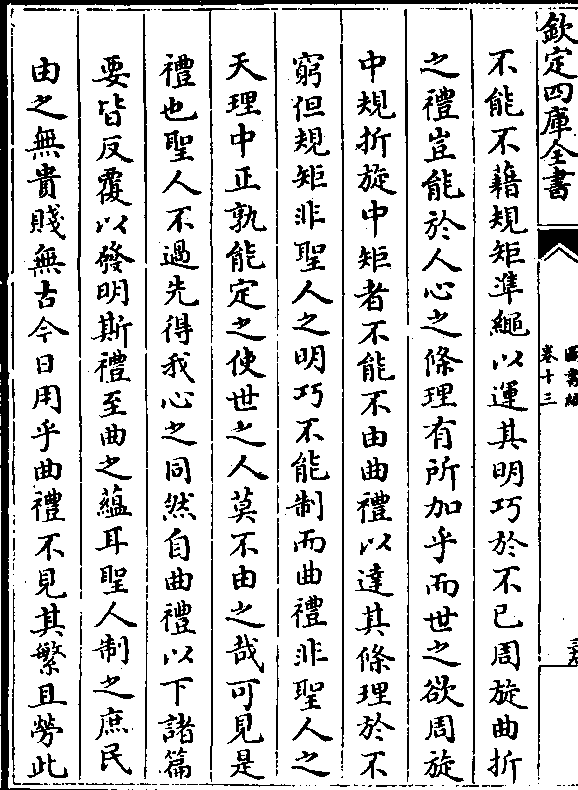 欽定四庫全書
卷十三
不能不藉規矩準繩以運其明巧於不已周旋曲折
之禮豈能於人心之條理有所加乎而世之欲周旋
中規折旋中矩者不能不由曲禮以達其條理於不
窮但規矩非聖人之明巧不能制而曲禮非聖人之
天理中正孰能定之使世之人莫不由之哉可見是
禮也聖人不過先得我心之同然自曲禮以下諸篇
要皆反覆以發明斯禮至曲之蘊耳聖人制之庶民
由之無貴賤無古今日用乎曲禮不見其繁且勞此